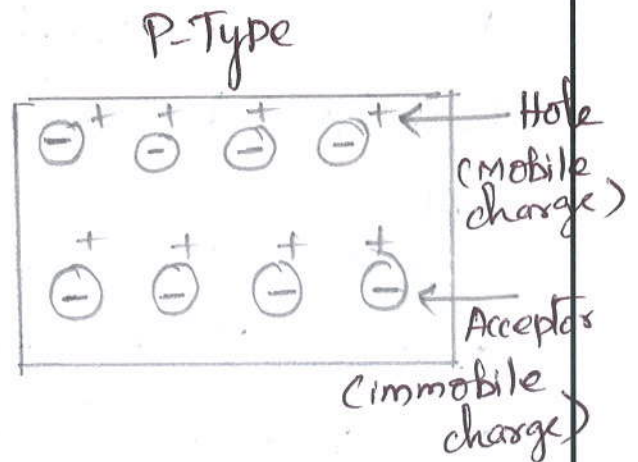 P-Type
+ + + +
- - - -
Hole
(Mobile
charge)
+ + + +
- - - -
Acceptor
(immobile
charge)